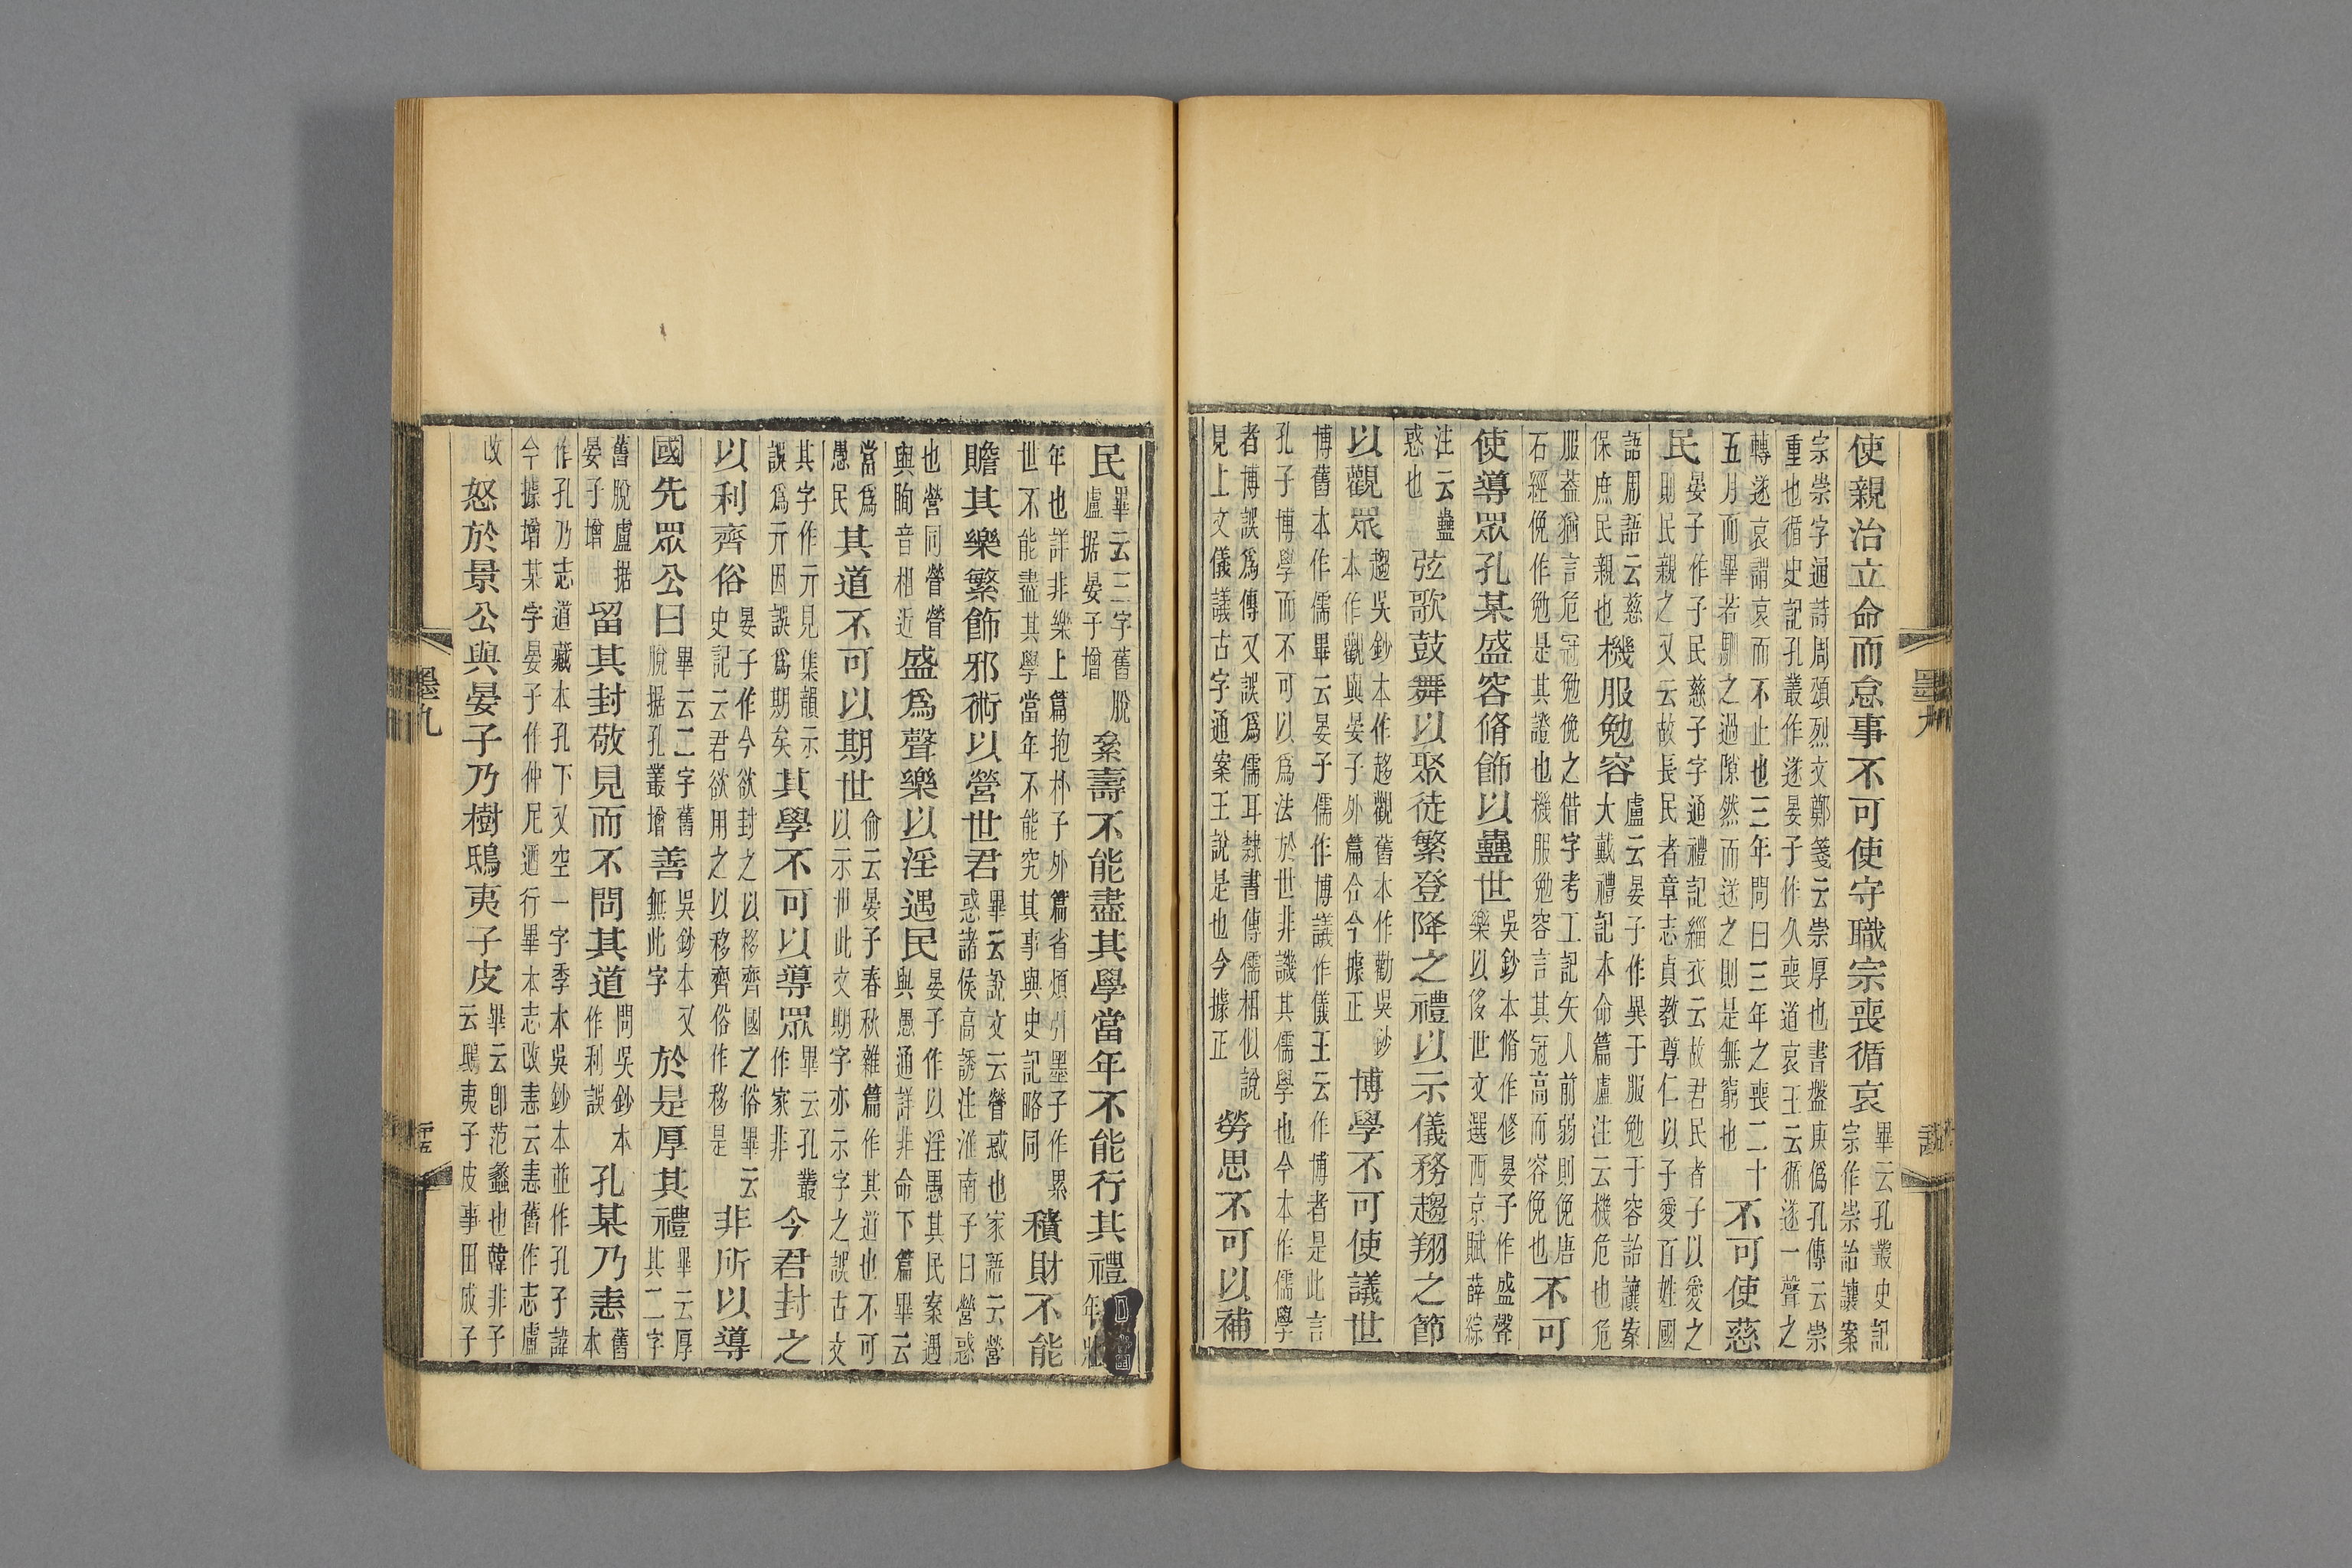 使親治立命而怠事不可使守職宗喪循哀畢云孔叢史記宗作崇詒讓案
宗崇字通詩周頌烈文鄭箋云崇厚也書盤庚僞孔傳云崇重也循史記孔叢作遂晏子作久喪道哀王云循遂一聲之
轉遂哀謂哀而不止也三年問曰三年之喪二十五月而畢若駟之過隙然而遂之則是無窮也不可使慈
民晏子作子民慈子字通禮記緇衣云故君民者子以愛之則民親之又云故長民者章志貞教尊仁以子愛百姓國
語周語云慈保庶民親也機服勉容盧云晏子作異于服勉于容詒讓案大戴禮記本命篇盧注云機危也危
服葢猶言危冠勉俛之借字考工記矢人前弱則俛唐石經俛作勉是其證也機服勉容言其冠高而容俛也不可
使導眾孔某盛容脩飾以蠱世吳鈔本脩作修晏子作盛聲樂以侈世文選西京賦薛綜
注云蠱惑也弦歌鼓舞以聚徒繁登降之禮以示儀務趨翔之節
以觀眾趨吳鈔本作趍觀舊本作勸吳鈔本作觀與晏子外篇合今據正博學不可使議世
博舊本作儒畢云晏子儒作博議作儀王云作博者是此言孔子博學而不可以爲法於世非譏其儒學也今本作儒學
者博誤爲傳又誤爲儒耳隸書傳儒相似說見上文儀議古字通案王說是也今據正勞思不可以補
墨九
民畢云三字舊脫盧据晏子增絫壽不能盡其學當年不能行其禮年壯
年也詳非樂上篇抱朴子外篇省煩引墨子作累世不能盡其學當年不能究其事與史記略同積財不能
贍其樂繁飾邪術以營世君畢云說文云營惑也家語云營惑諸侯高誘注淮南子曰營惑
也營同營營與眴音相近盛爲聲樂以淫遇民晏子作以淫愚其民案遇與愚通詳非命下篇畢云
當爲愚民其道不可以期世俞云晏子春秋雜篇作其道也不可以示世此文期字亦示字之誤古文
其字作亓見集韻示誤爲亓因誤爲期矣其學不可以導眾畢云孔叢作家非今君封之
以利齊俗晏子作今欲封之以移齊國之俗畢云史記云君欲用之以移齊俗作移是非所以導
國先眾公曰畢云二字舊脫据孔叢增善吳鈔本又無此字於是厚其禮畢云厚其二字
舊脫盧据晏子增留其封敬見而不問其道問吳鈔本作利誤孔某乃恚舊本
作孔乃志道藏本孔下又空一字季本吳鈔本並作孔子諱今據增某字晏子作仲尼迺行畢本志改恚云恚舊作志盧
改怒於景公與晏子乃樹鴟夷子皮畢云卽范蠡也韓非子云鴟夷子皮事田成子
墨九